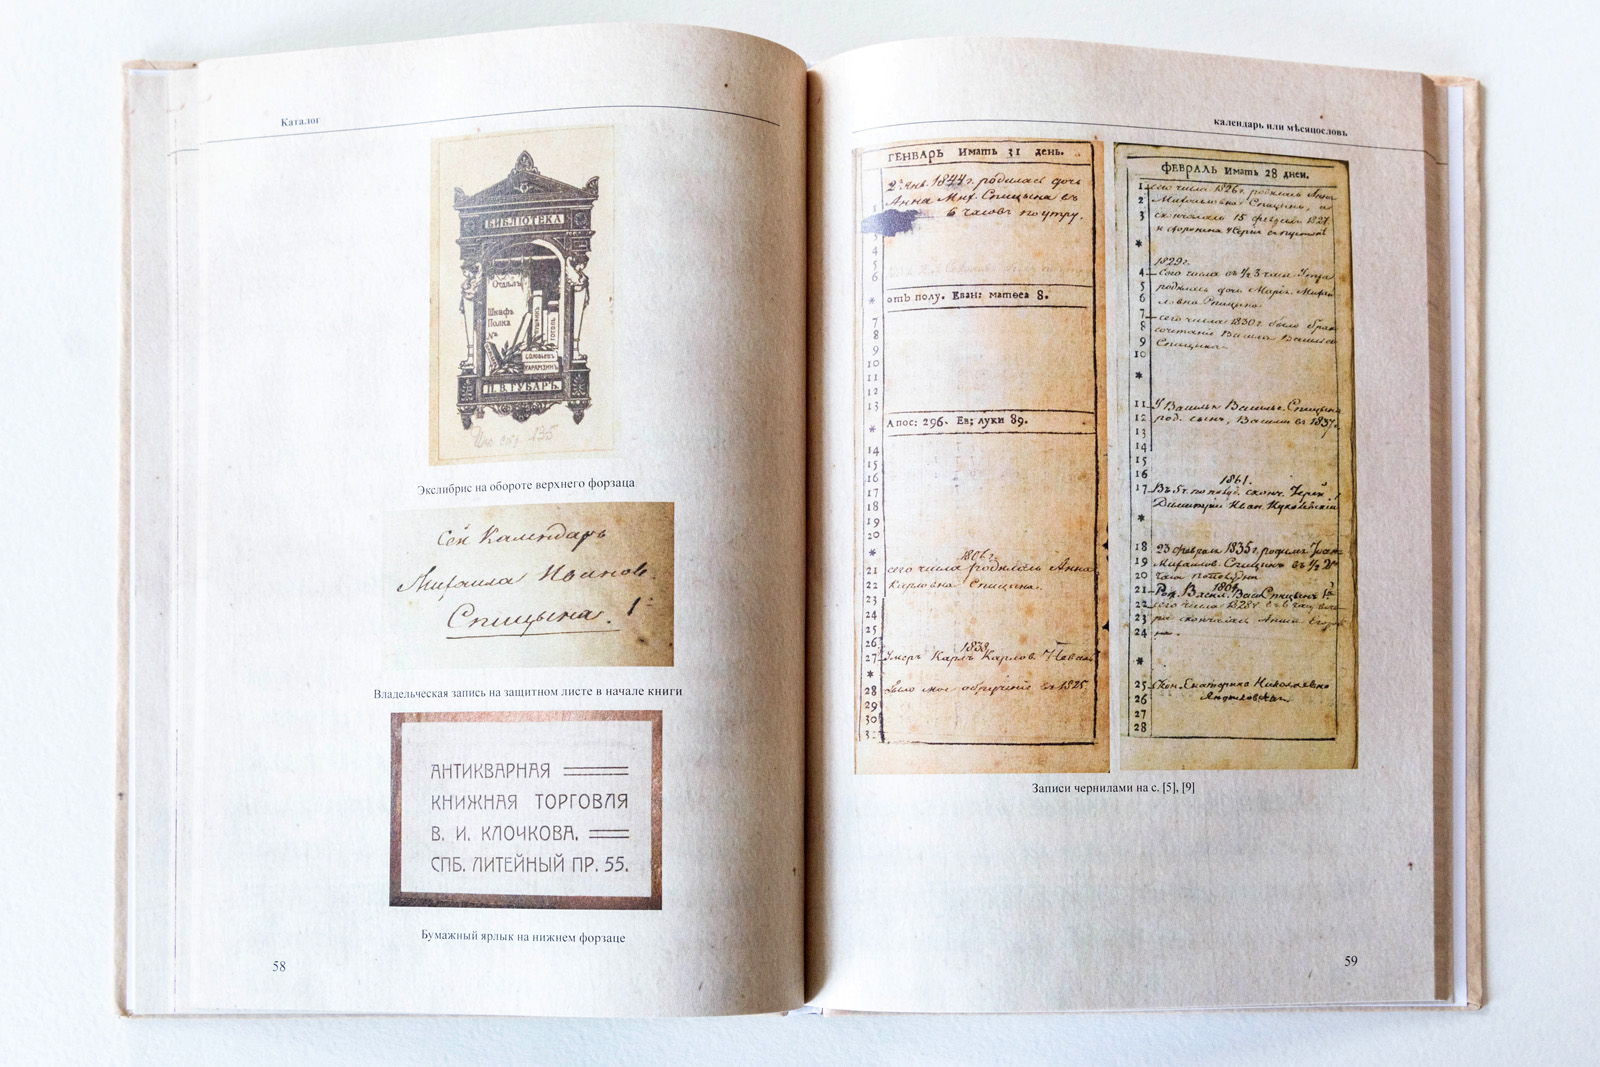 Каталог
БИБЛІОТЕКА
Отдѣлъ
Шкафъ
Полка
№
ПУШКИНЪ
ГОГОЛЬ
СОЛОВЬЕВЪ
КАРАМЗИНЪ
П. В. ГУБАРЪ.
135
Экслибрис на обороте верхнего форзаца
Сей Календарь
Михаила Иванов.
Спицына.
Владельческая запись на защитном листе в начале книги
АНТИКВАРНАЯ
КНИЖНАЯ ТОРГОВЛЯ
В. И. КЛОЧКОВА.
СПБ. ЛИТЕЙНЫЙ ПР. 55.
Бумажный ярлык на нижнем форзаце
58
календарь или мѣсяцословъ
ГЕНВАРЬ Имать 31 день.
2го янв. 1844 г. родилась дочь
Анна Мих. Спицына въ
6 часовъ по утру.
3
4
5
6
* отъ полу. Еванг матѳеа 8.
7
8
9
10
11
12
13
* Апос: 296. Ев; луки 89.
14
15
16
17
18
19
20
* 1806 г.
21 сего числа родилась Анна
22 Карловна Спицына.
23
24
25
26 1838
27 Умеръ Карлъ Карлов.
*
28 Было мое обрученіе въ 1825
29
30
3
ФЕВРАЛЬ Имать 28 дней.
1 сего числа 1826 г. родилась Анна
2 Михайловна Спицына, и
3 скончалась 15 февраля 1827
*
1829 г.
4 Сего числа въ ½ 3 часа Утра
5 родилась дочь Марія Михай
6 ловна Спицына.
7 сего числа 1830 г. было брако
8 сочетаніе Василья Васильев
9 Спицына.
10
*
11 У Василья Василье. Спицына
12 род. сынъ, Василій въ 1837 г.
13
14
15
16 1861.
17 Въ 5 ч. по полуд. сконч. Іерей
Димитрій Иван.
*
18 23 февраля 1835 г. родился Іоан
19 Михайлов. Спицынъ въ ½ 2го
20 часа пополудни
21 Род. Васил. Вас. Спицынъ
22 сего числа 1828 г. въ 6 час. вече
23 ра скончалась Анна Егоров
24 на.
*
25 Скон. Екатерина Николаевна
26
27
28
Записи чернилами на с. [5], [9]
59